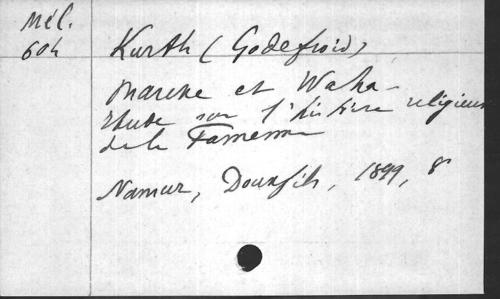 Mél.
604
Kurth (Godefroid)
Marche et Waha -
Etude sur l'histoire religieuse
de la Famenne
Namur, Douxfils, 1899, 8°